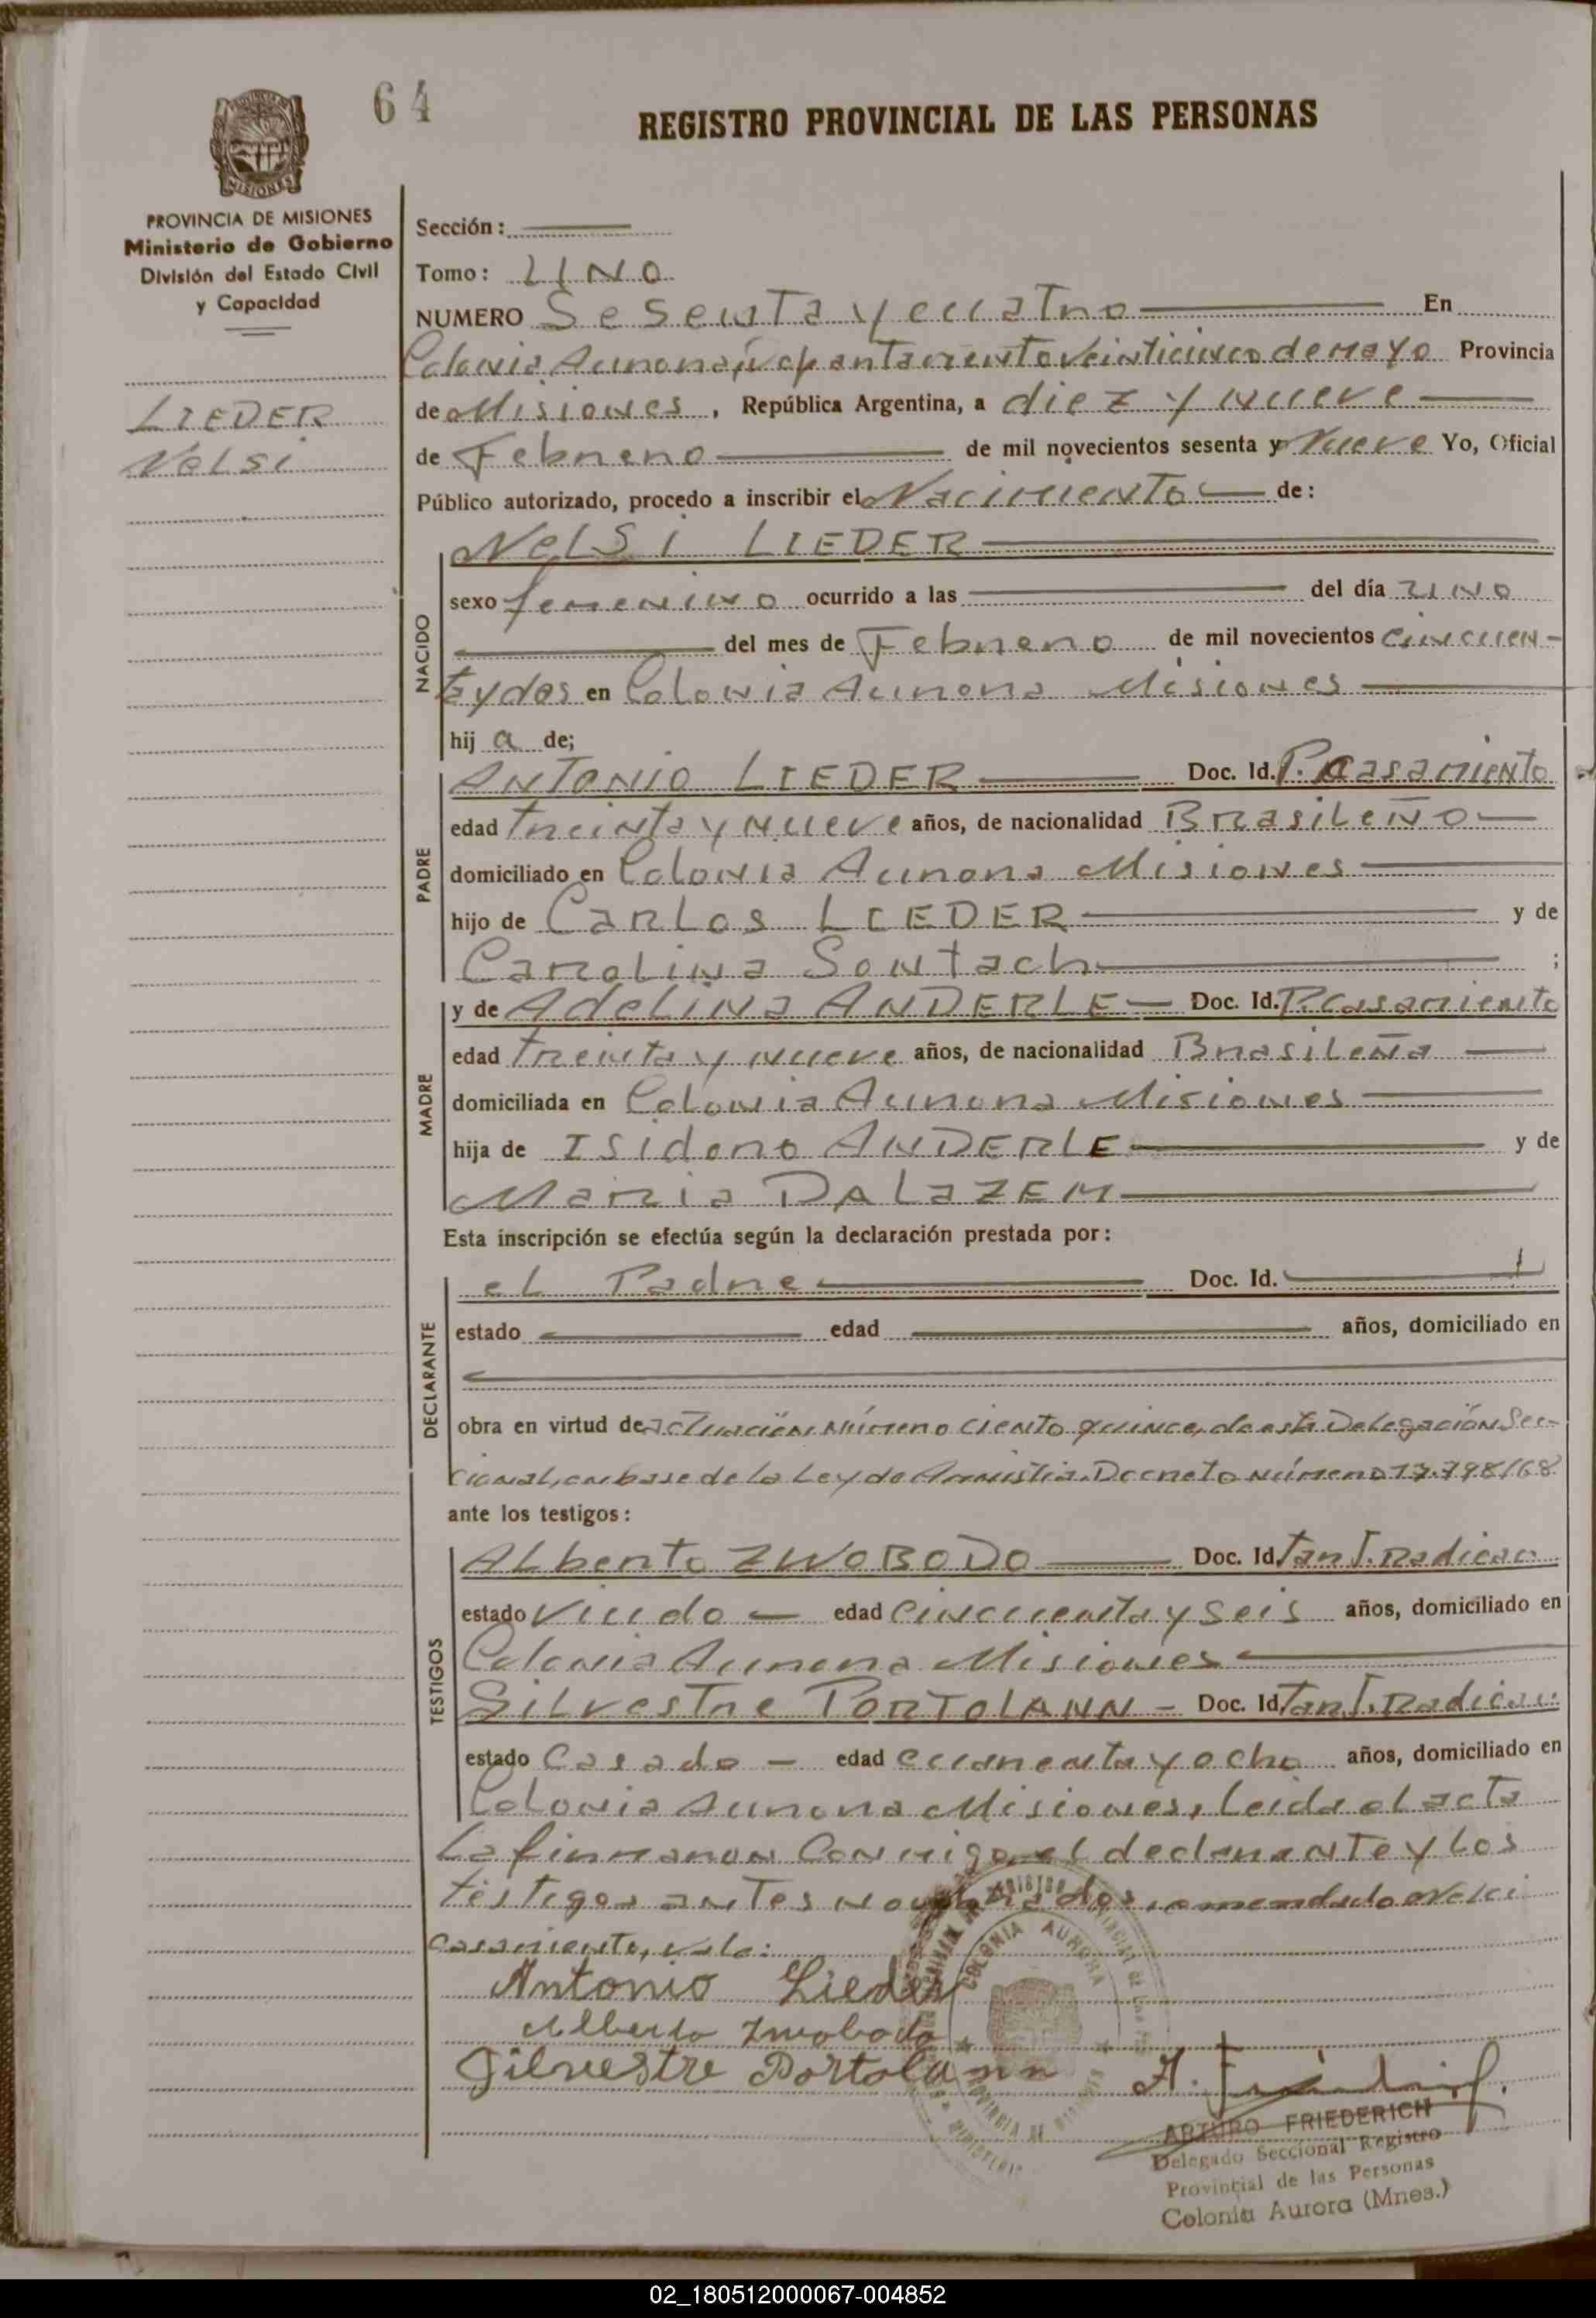 64
REGISTRO PROVINCIAL DE LAS PERSONAS
PROVINCIA DE MISIONES
Ministerio de Gobierno
División del Estado Civil
y Capacidad
LIEDER
Nelsi
Sección:
Tomo: UNO
NUMERO Sesenta y cuatro En
Colonia Aurora, departamento Veinticinco de Mayo Provincia
de Misiones, República Argentina, a diez y nueve
de Febrero de mil novecientos sesenta y Nueve Yo, Oficial
Público autorizado, procedo a inscribir el Nacimiento de:
NACIDO
Nelsi LIEDER
sexo femenino ocurrido a las del día UNO
del mes de Febrero de mil novecientos cincuen-
ta y dos en Colonia Aurora Misiones
hij a de;
PADRE
ANTONIO LIEDER Doc. Id. P. Casamiento
edad treinta y nueve años, de nacionalidad Brasileño
domiciliado en Colonia Aurora Misiones
hijo de Carlos LIEDER y de
Carolina Sontach ;
MADRE
y de Adelina ANDERLE Doc. Id. P. Casamiento
edad treinta y nueve años, de nacionalidad Brasileña
domiciliada en Colonia Aurora Misiones
hija de Isidoro ANDERLE y de
Maria DALAZEM
Esta inscripción se efectúa según la declaración prestada por:
DECLARANTE
el Padre Doc. Id.
estado edad años, domiciliado en
obra en virtud de actuación número ciento quince, de esta Delegación Sec-
cional, en base de la Ley de Amnistia. Decreto número 17.798/68
ante los testigos:
TESTIGOS
Alberto ZWOBODO Doc. Id. Tarj. Radicac
estado Viudo edad cincuenta y seis años, domiciliado en
Colonia Aurora Misiones
Silvestre PORTOLANN - Doc. Id. Tarj. Radicac
estado Casado - edad cuarenta y ocho años, domiciliado en
Colonia Aurora Misiones, Leida el acta
La firmaron Conmigo, el declarante y los
testigos antes nombrados, enmendado
casamiento, vale:
Antonio Lieder
Alberto Zwobodo
Silvestre Portolann
COLONIA AURORA
PROVINCIA DE MISIONES
ARTURO FRIEDERICH
Delegado Seccional Registro
Provincial de las Personas
Colonia Aurora (Mnes.)
02_180512000067-004852